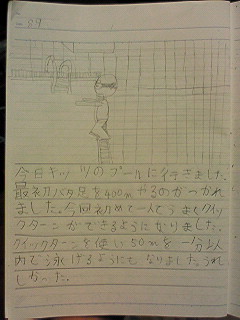 -89
今日キッツのプールに行きました。
最初バタ足を400mやるのがつかれ
ました。今回初めて一人でうまくクイッ
クターンができるようになりました。
クイックターンを使い50mを一分以
内で泳げるようにもなりました。うれ
しかった。